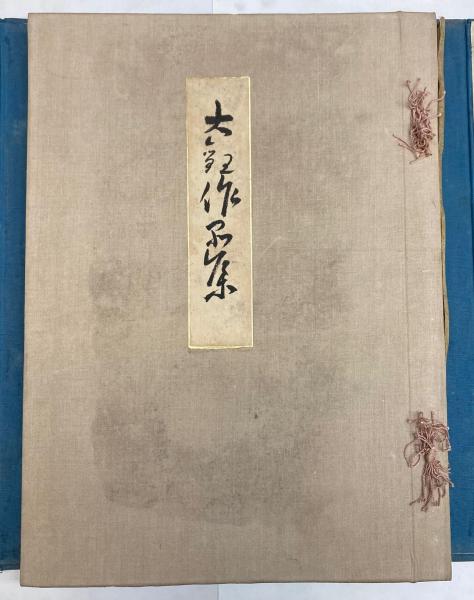 大観作品集